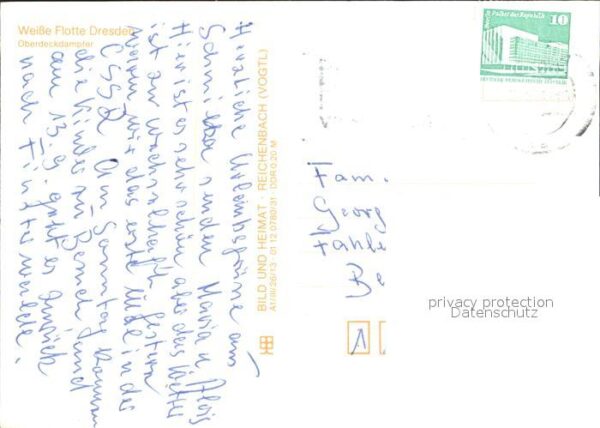 Weiße Flotte Dresden
Oberdeckdampfer
Herzliche Urlaubsgrüße aus
senden Maria u. Alois
Hier ist es sehr schön aber das Wetter
ist
waren wir das erste Mal in der
CSSR Am Sonntag kommen
die Kinder zu Besuch und
am 13.9. geht es zurück
nach Finsterwalde.
BILD UND HEIMAT · REICHENBACH (VOGTL)
A1/III/26/13 · 01 12 0780/31 · DDR 0,20 M
Palast der Republik
10
Fam.
Georg
Be
privacy protection
Datenschutz